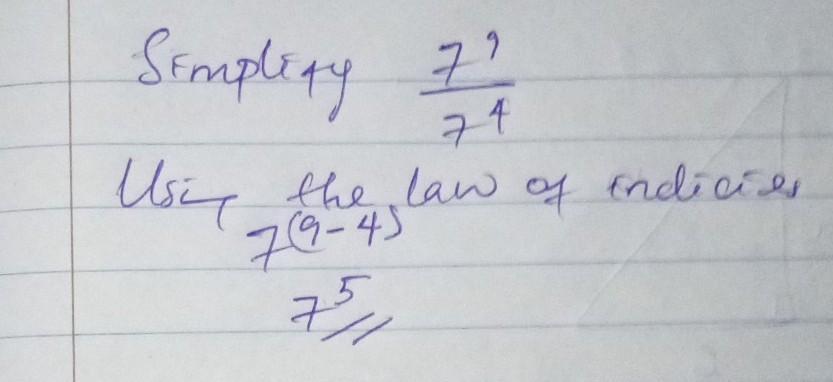 Simplify 7⁹/7⁴
Using the law of indicies
7^(9-4)
7⁵